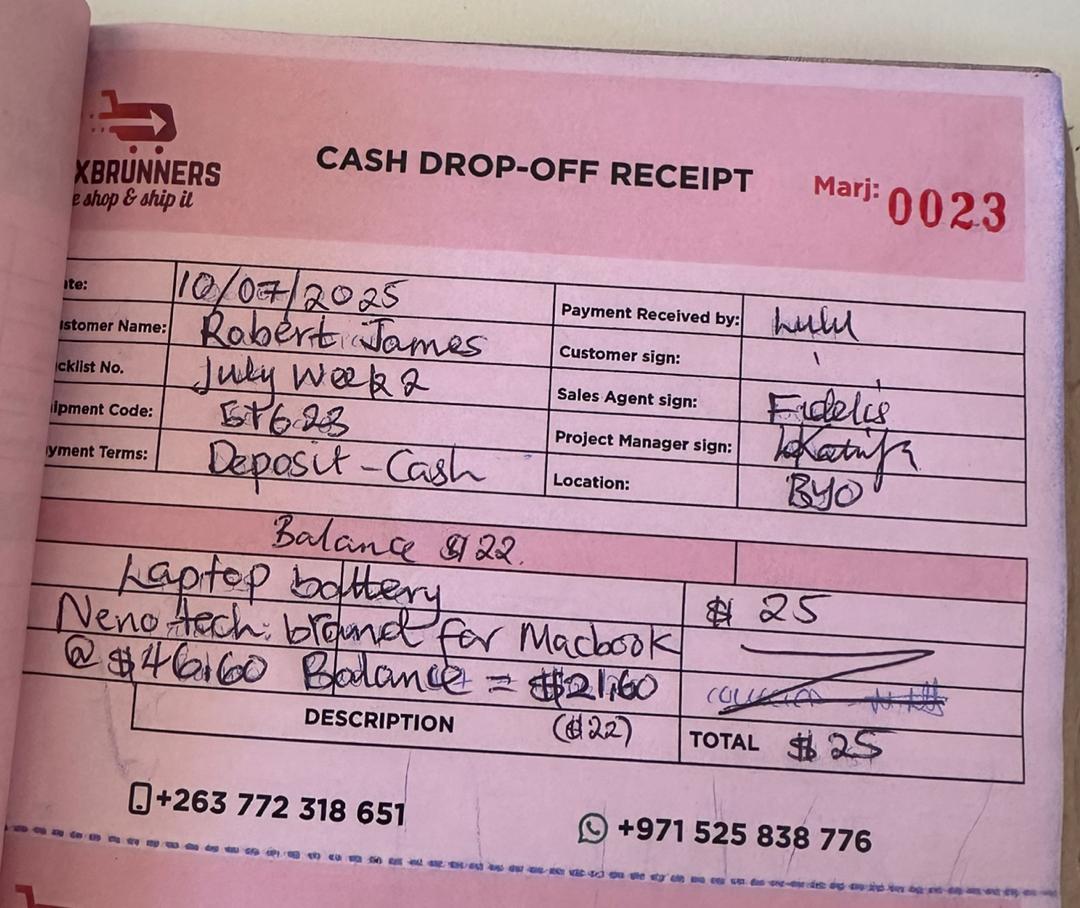 XBRUNNERS
e shop & ship it
CASH DROP-OFF RECEIPT
Marj: 0023
ate: 10/07/2025
stomer Name: Robert James
cklist No. July Week 2
ipment Code:
yment Terms: Deposit - Cash
Payment Received by: Lulu
Customer sign:
Sales Agent sign: Fidelis
Project Manager sign:
Location: BYO
Balance $22.
Laptop battery $ 25
Neno tech: brand for Macbook
@ $46.60 Balance = $21.60
DESCRIPTION ($22) TOTAL $ 25
+263 772 318 651
+971 525 838 776